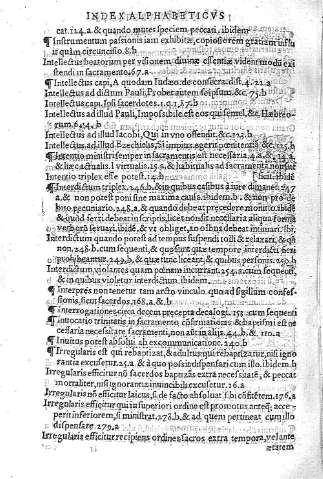 INDEX ALPHABETICVS
cat. 124.a. & quando mutet speciem peccati. ibidem
¶ Instrumentum passionis iam exhibitæ, copiosiorem gratiam influ
it quàm circuncisio. 8.b
Intellectus beatorum per visionem diuinæ essentiæ vident modũ exi
stendi in sacramento. 67.a
¶ Intellectus capi, A quodam Iudæo. de consecra. dist. 4. 21.a
Intellectus ad dictum Pauli, Probet autem seipsum. &c. 75.b
Intellectus capi. Ipsi sacerdotes. 1.q.1. 87.b
Intellectus ad illud Pauli, Impossibile est eos qui semel, &c. Hæbreo
rum. 6. 94.b
Intellectus ad illud Iacobi, Qui in vno offendit. &c. 123.b
Intellectus ad illud Ezechielis, Si impius egerit pœnitentiã &c.
¶ Intentio ministri semper in sacramentis est necessaria.
& hæc actualis. l. virtualis. 15.b. & habitualis ad sacramentũ non suf
Intentio triplex esse potest. 14.b
¶ Interdictum triplex. 246.b. & in quibus casibus à iure dimanet. 247
a. & non potest poni sine maxima causa. ibidem. b. & non pro de
bito pecuniario. 248.a. & quando debeat precedere monitio. ibidẽ
& quid ferri debeat in scriptis, licet non sit necessaria aliqua forma
verborũ seruari, ibidẽ, & vt obliget, an oporteat intimari. ibi.
Interdictum quando potest ad tempus suspendi tolli & relaxari, & qñ
non. 246.b. cum sequenti, & quæ sint quæ tempore interdicti fieri
prohibeantur. 249.b, & quæ tunc liceant, & quibus personis. 250.b
Interdictum, violantes quam pœnam incurrant. 254.a. cum sequenti,
& in quibus violetur interdictum. ibidem
¶ Interpres non tenetur tam arcto vinculo, quo ad sigillum confes-
sionis, sicut sacerdos. 168.a. & b
¶ interrogationes circa decem precepta decalogi. 151. cum sequenti
¶ Inuocatio trinitatis in sacramento cõfirmationis & baptismi est ne
cessaria necessitate sacramenti, non aut in aliis. 44.b, &. 110.a
¶ Inuitus potest absolui ab excommunicatione. 240.b
¶ Irregularis est qui rebaptizat, & adultus qui rebaptizatur, nisi igno
rantia excusetur. 25.a. & à quo possit dispensari cum illo. ibidem. b
Irregularis efficitur nõ sacerdos baptizãs extra necessitatẽ, & peccat
mortaliter, nisi ignorantia inuincibilis excusetur. 16.a
Irregularis nõ efficitur laicus, si de facto absoluat s̃ibi cõfitẽtem. 176.a
Irregularis efficitur qui in superiori ordine est promotus anteq̃ acce-
perit inferiorem, si ministrat. 278.b. & ad quem pertineat cum illo
dispensare. 279.a
Irregularis efficitur recipiens ordines sacros extra tempora, vel ante
ætatem